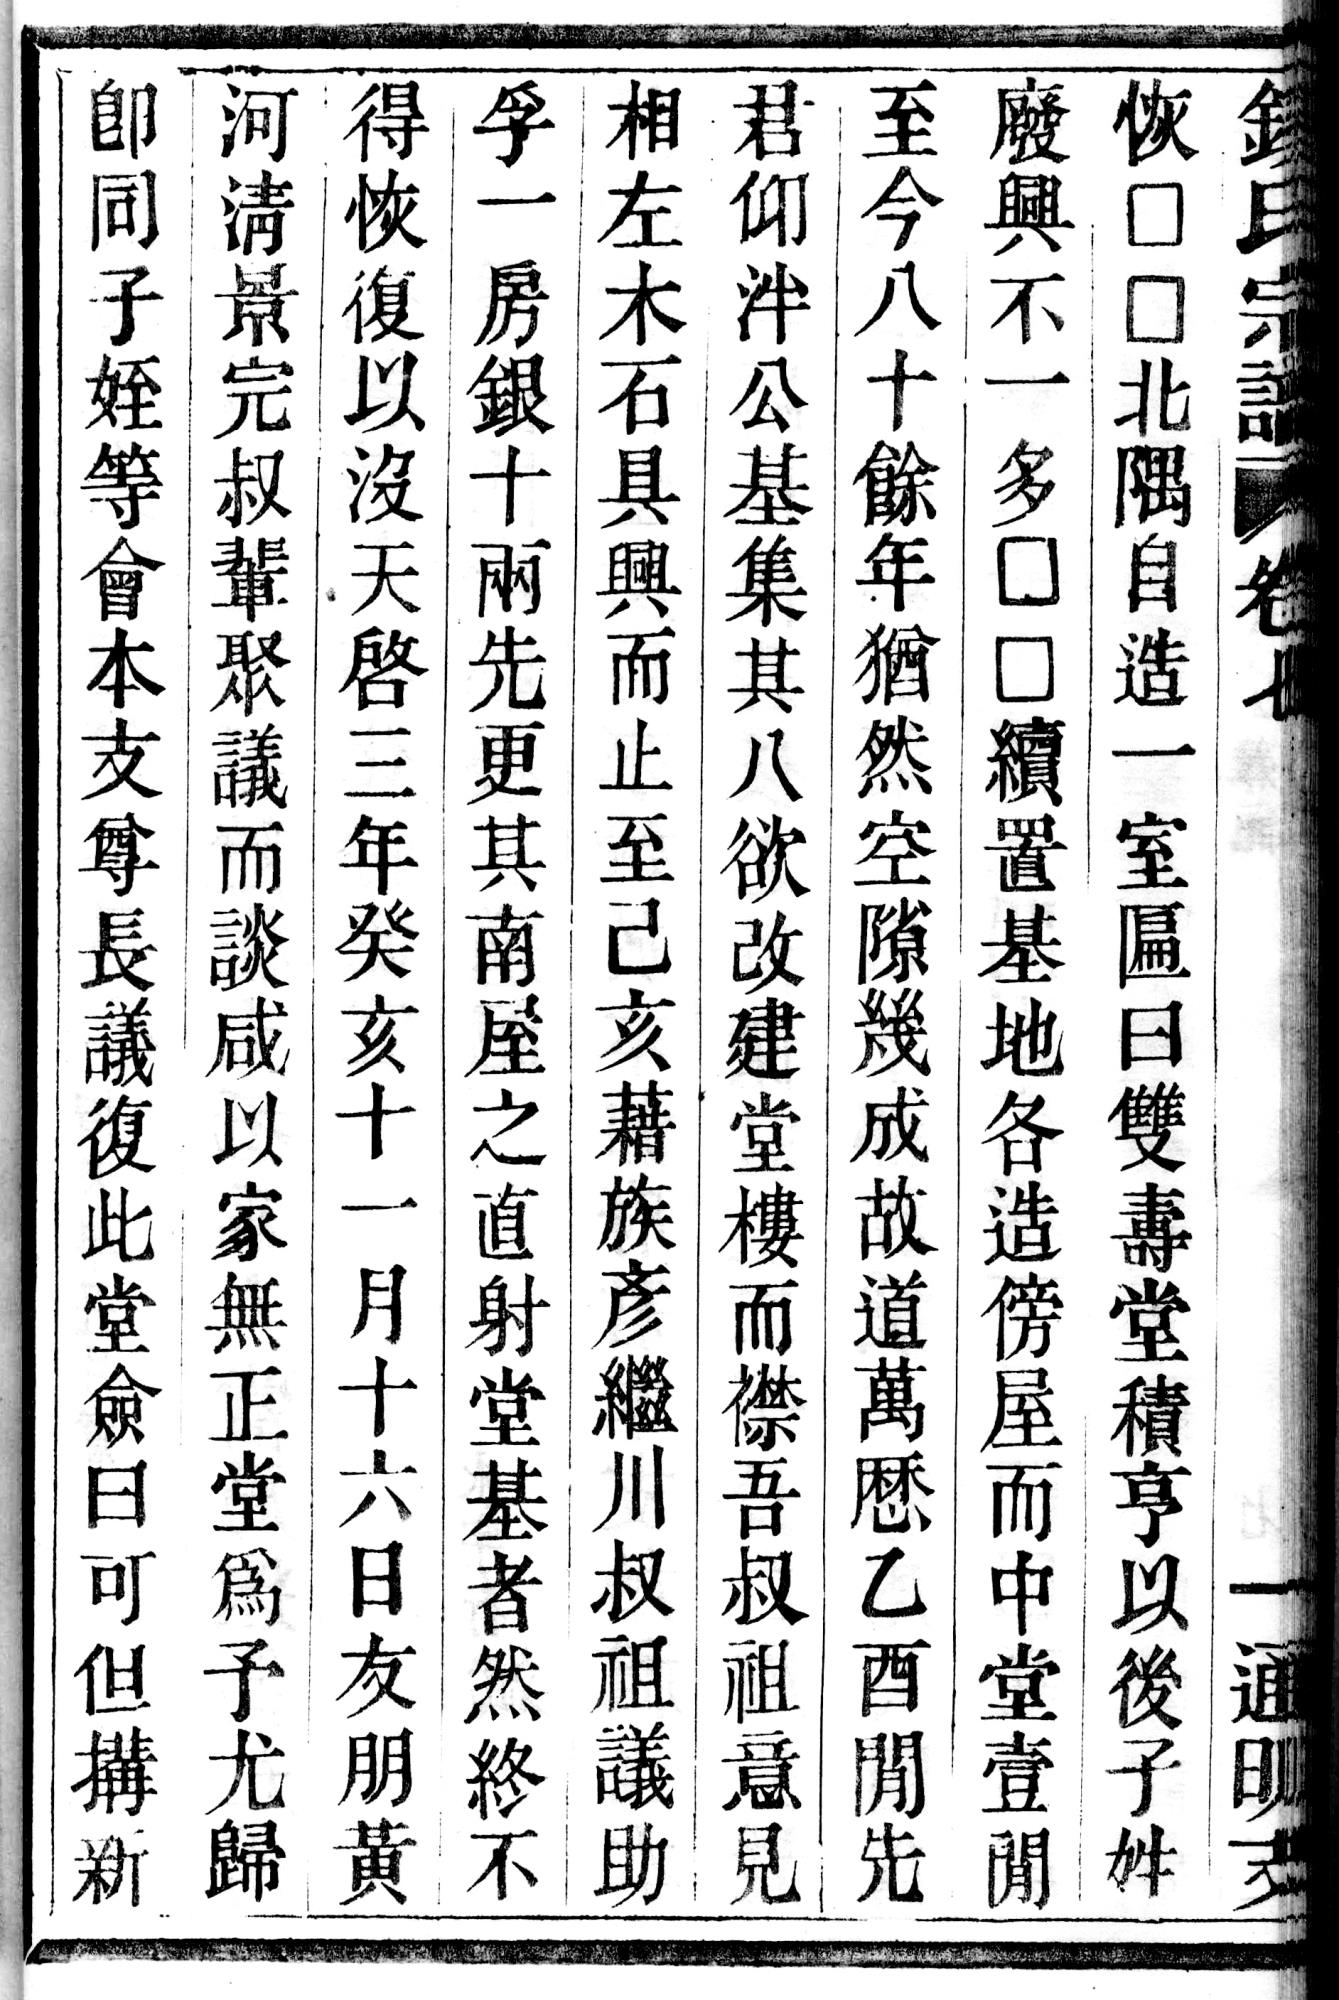 錢氏宗譜 卷七 一 通明支
恢□□北隅自造一室匾曰雙壽堂積亨以後子姓
廢興不一多□□續置基地各造傍屋而中堂壹閒
至今八十餘年猶然空隙幾成故道萬厯乙酉閒先
君仰泮公基集其八欲改建堂樓而襟吾叔祖意見
相左木石具興而止至己亥藉族彥繼川叔祖議助
孚一房銀十兩先更其南屋之直射堂基者然終不
得恢復以沒天啓三年癸亥十一月十六日友朋黃
河淸景完叔輩聚議而談咸以家無正堂爲予尤歸
卽同子姪等會本支尊長議復此堂僉曰可但搆新